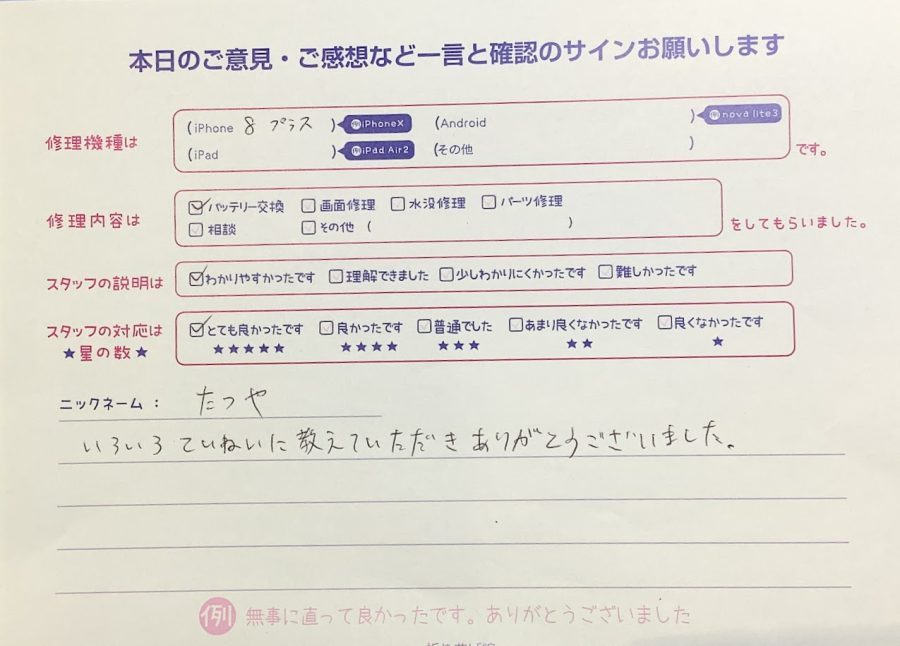 本日のご意見・ご感想など一言と確認のサインお願いします
修理機種は
(iPhone 8 プラス ) 例iPhoneX (Android ) 例nova lite3
(iPad ) 例iPad Air2 (その他 ) です。
修理内容は
バッテリー交換 画面修理 水没修理 パーツ修理
相談 その他 ( ) をしてもらいました。
スタッフの説明は
わかりやすかったです 理解できました 少しわかりにくかったです 難しかったです
スタッフの対応は
★星の数★
とても良かったです 良かったです 普通でした あまり良くなかったです 良くなかったです
★★★★★ ★★★★ ★★★ ★★ ★
ニックネーム: たつや
いろいろていねいに教えていただきありがとうございました。
例 無事に直って良かったです。ありがとうございました